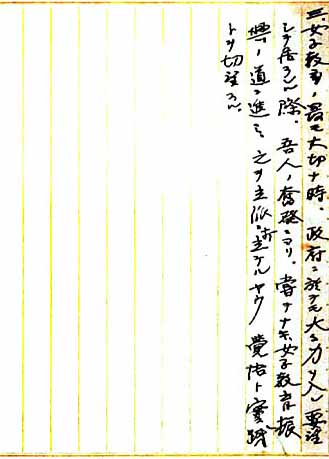 三女子教育ノ最モ大切ナ時、政府ニ於テモ大ニ力ヲ入レ要望
シテ居ラルル際、吾人ノ奮発ニヨリ、常ナキ女子教育振
興ノ道ニ進ミ之ヲ立派ニ立テルヤウ覚悟ト実践
トヲ切望スル。